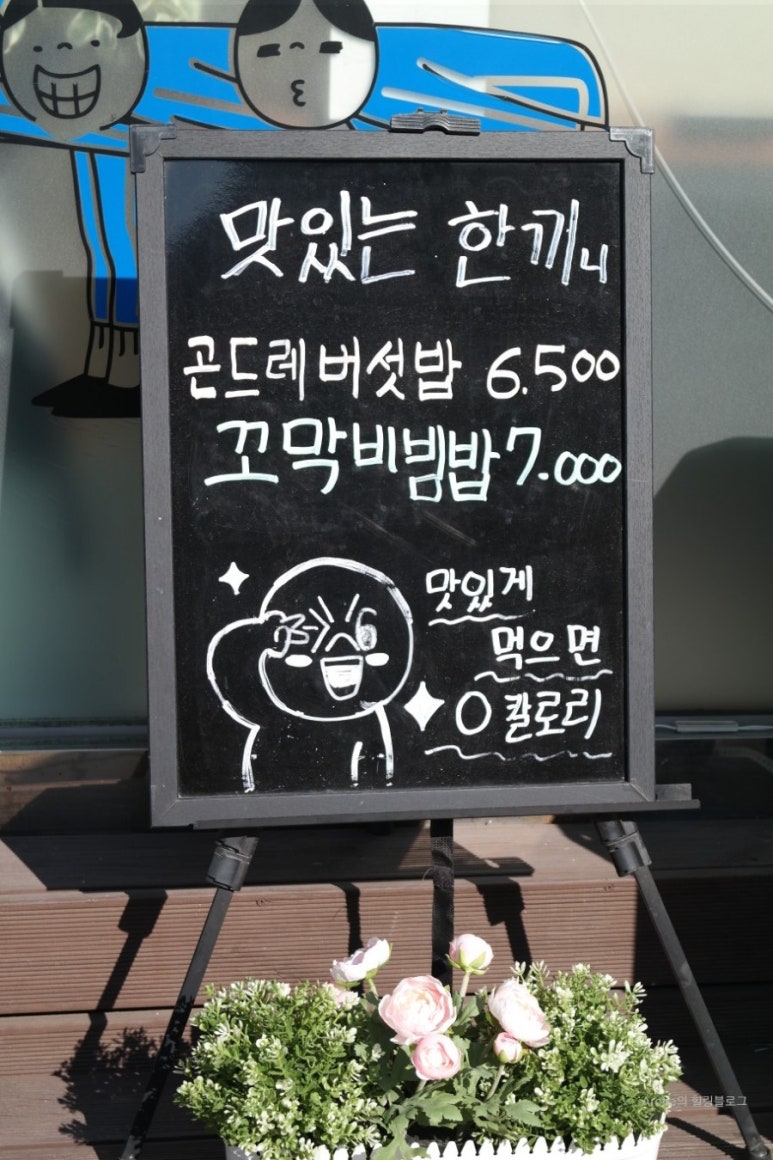 맛있는 한끼니
곤드레버섯밥 6.500
꼬막비빔밥 7.000
맛있게
먹으면
0칼로리